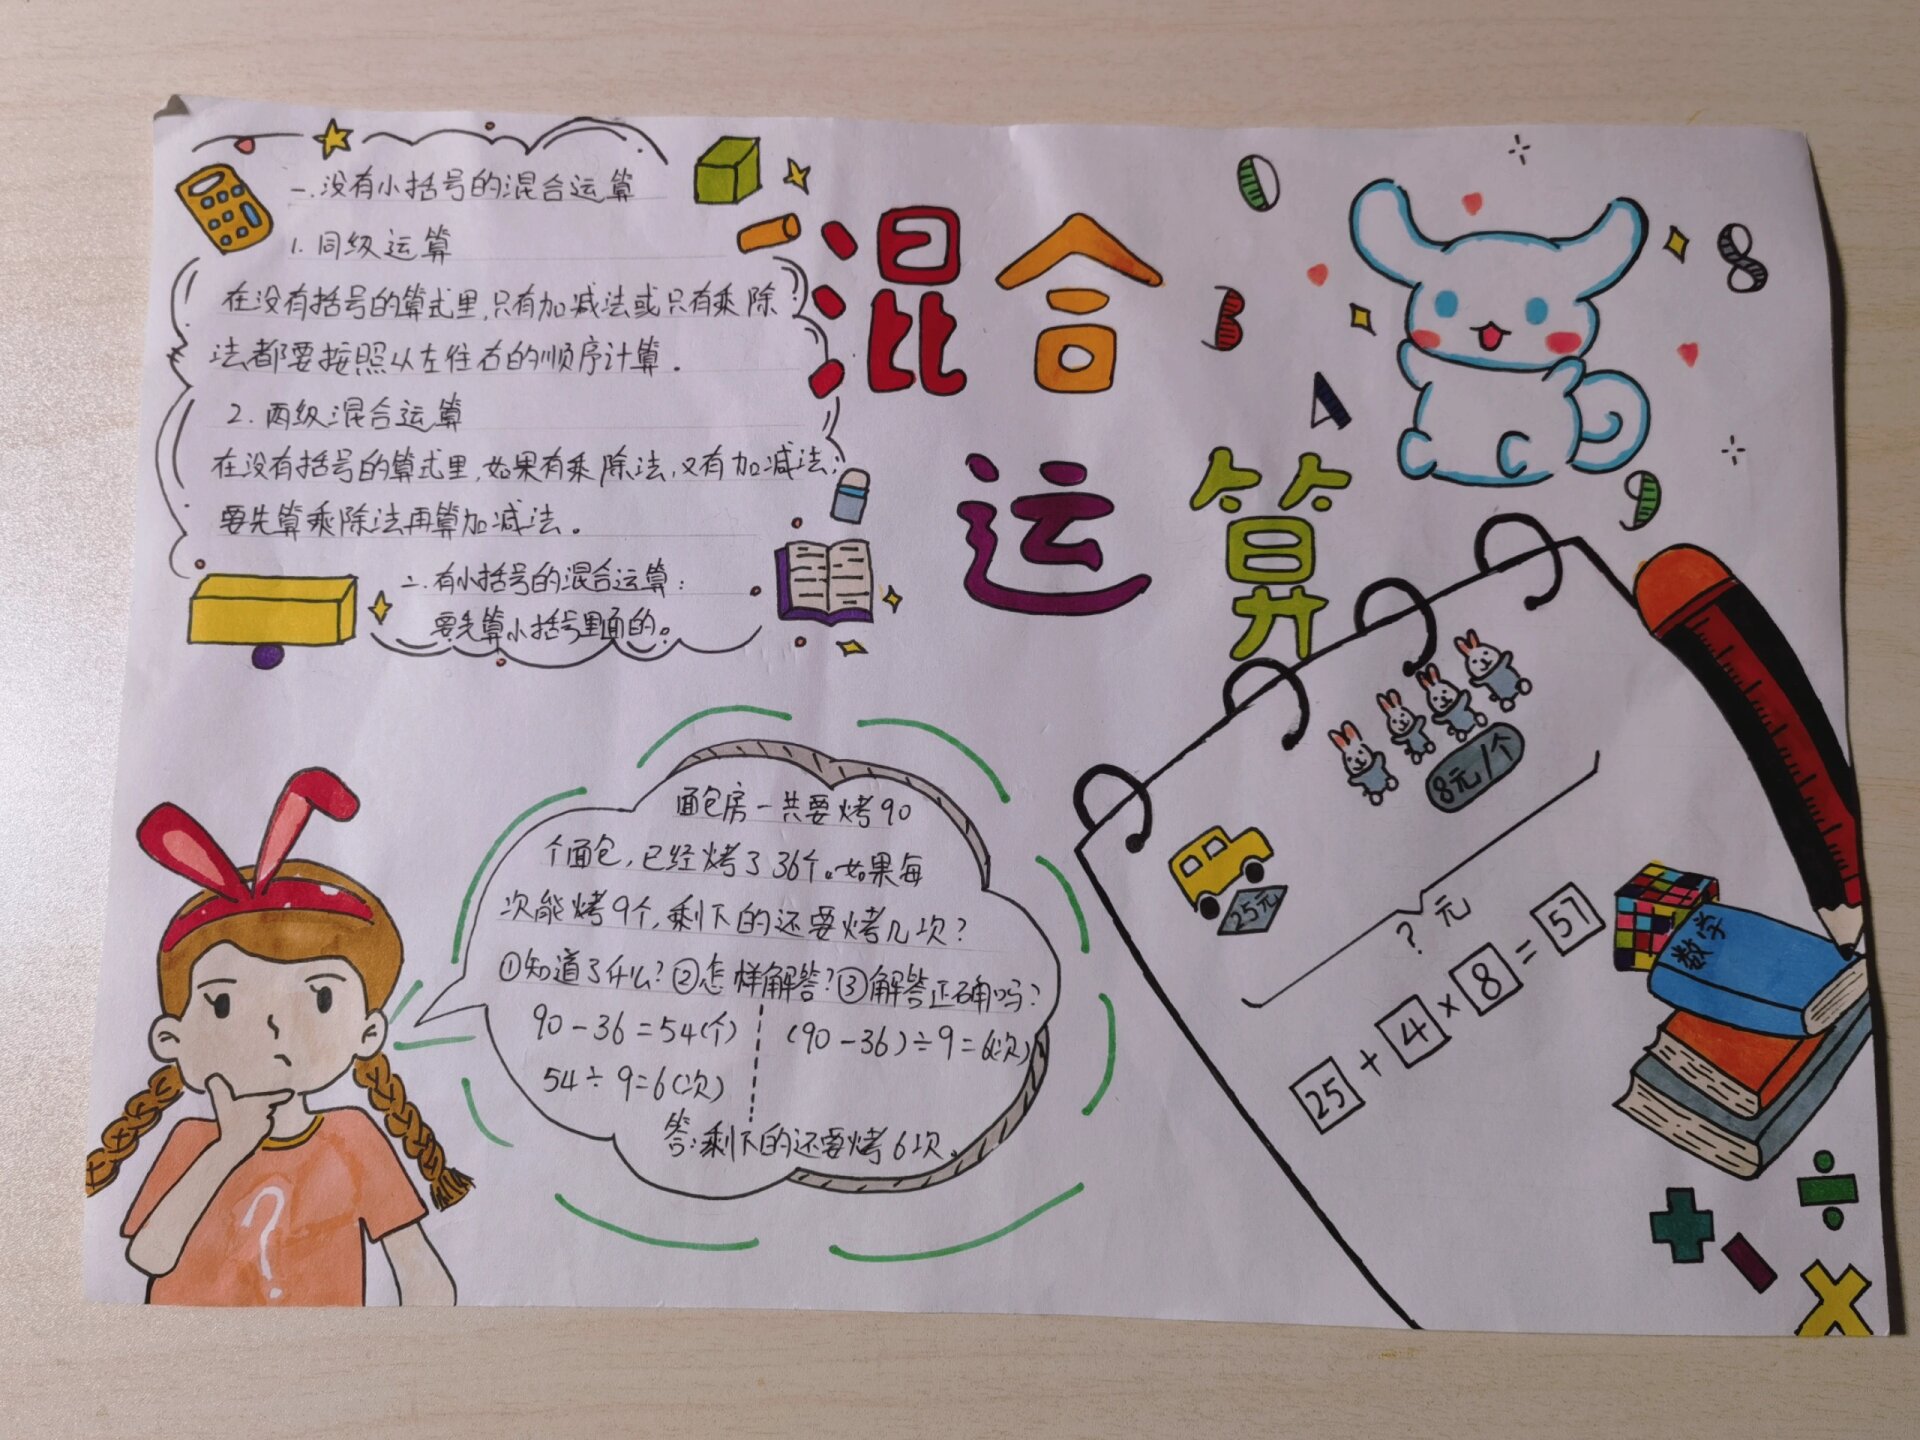 混合
运算
一.没有小括号的混合运算
1.同级运算
在没有括号的算式里,只有加减法或只有乘除
法都要按照从左往右的顺序计算。
2.两级混合运算
在没有括号的算式里,如果有乘除法,又有加减法;
要先算乘除法再算加减法。
二.有小括号的混合运算:
要先算小括号里面的。
面包房一共要烤90
个面包,已经烤了36个。如果每
次能烤9个,剩下的还要烤几次?
①知道了什么?②怎样解答?③解答正确吗?
90-36=54(个)
54÷9=6(次)
(90-36)÷9=6(次)
答:剩下的还要烤6次。
8元/个
25元
?元
25+4×8=57
数学
0
3
8
4
9
?
+ - ÷ ×